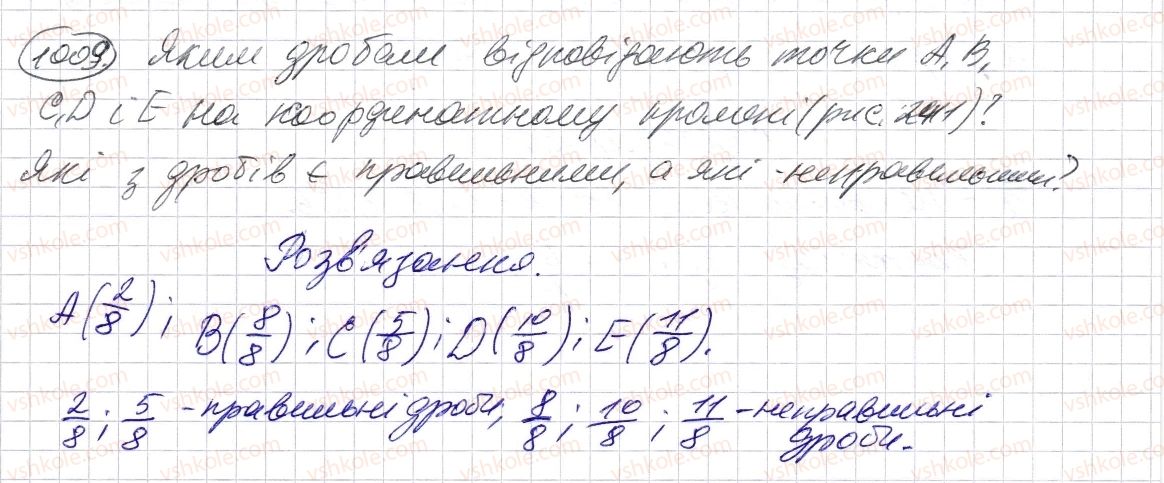 1009. Яким дробам відповідають точки A, B,
C, D і E на координатному промені (рис. 241)?
Які з дробів є правильними, а які - неправильними?
Розв'язання.
A(2/8); B(8/8); C(5/8); D(10/8); E(11/8).
2/8; 5/8 - правильні дроби, 8/8; 10/8; 11/8 - неправильні
дроби.